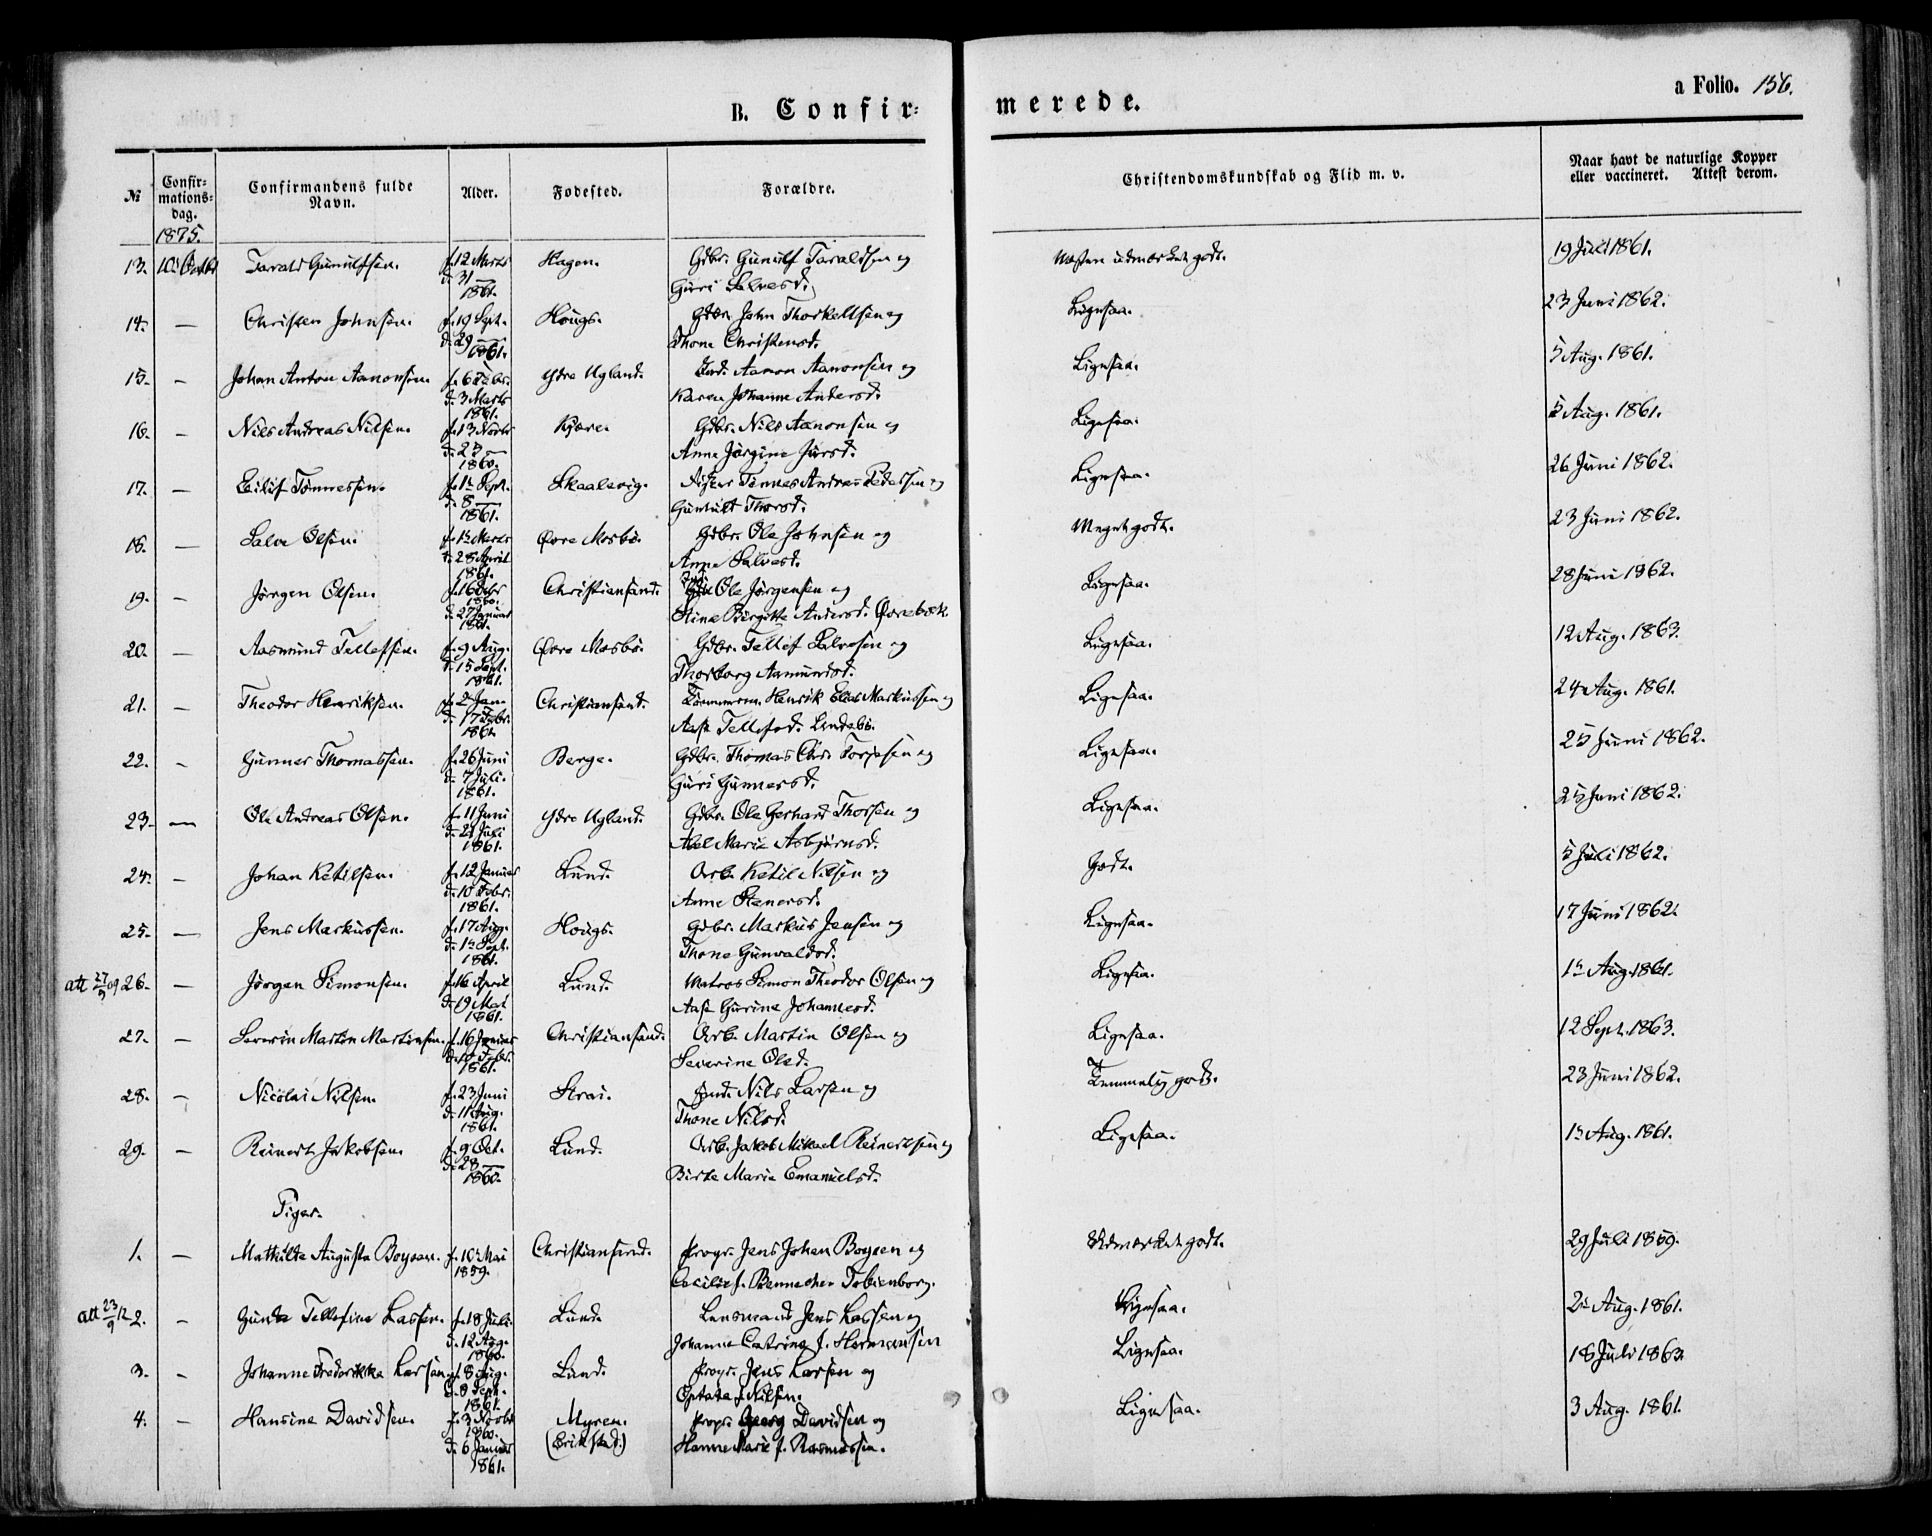 a Folio. 156.
B. Confir- merede.
№
Confir-
mations-
dag.
1875.
Confirmandens fulde
Navn.
Alder.
Fødested.
Forældre.
Christendomskundskab og Flid m. v.
Naar havt de naturlige Kopper
eller vaccineret. Attest derom.
13. 10. Octbr Tarald Gunulfsen. f. 12 Marts Hagen. Gdbr. Gunulf Taraldsen og Næsten udmærket godt. 19 Juli 1861.
d. 31 —
1861. Guri Salvesd.
14. — Christen Johnsen. f. 19 Sept. Hougs. Gdbr. John Thorkeltsen og Ligesaa. 23 Juni 1862.
d. 29 —
1861. Thone Christensd.
15. — Johan Anton Aanonsen. f. 6 Febr. Ydre Ugland. Aanon Aanonsen og Ligesaa. 5 Aug. 1861.
d. 3 Marts
1861. Karen Johanne Andersd.
16. — Nils Andreas Nilsen. f. 13 Novbr Kjære. Gdbr. Nils Aanonsen og Ligesaa. 5 Aug. 1861.
d. 23 —
1860. Anne Jørgine Jørsd.
17. — Eilif Tønnessen. f. 1ste Sept. Skaalevig. Tønnes Andreas Pedersen og Ligesaa. 26 Juni 1862.
d. 8 —
1861. Gunhilt Thorsd.
18. — Salve Olsen. f. 1ste Marts Øvre Mosbø. Gdbr. Ole Johnsen og Meget godt. 23 Juni 1862.
d. 28 April
1861. Anne Salvesd.
19. — Jørgen Olsen. f. 16 Octbr Christiansand. Ole Jørgensen og Ligesaa. 28 Juni 1862.
1860.
d. 27 Januar
1861. Stine Birgitte Andersd. Øvrebøk.
20. — Aasmund Tellefsen. f. 9 Aug. Øvre Mosbø. Gdbr. Tellef Salvesen og Ligesaa. 12 Aug. 1863.
d. 15 Sept.
1861. Thorborg Aamundsd.
21. — Theodor Henriksen. f. 2 Jan. Christiansand. Tømmerm. Henrik Elias Markussen og Ligesaa. 24 Aug. 1861.
d. 17 Febr.
1861. Aase Tellefsd. Lindebø.
22. — Gunner Thomassen. f. 26 Juni Berge. Gdbr. Thomas Chr. Torjesen og Ligesaa. 25 Juni 1862.
d. 7 Juli.
1861. Guri Gunnersd.
23. — Ole Andreas Olsen. f. 11 Juni Ydre Ugland. Gdbr. Ole Gerhard Thorsen og Ligesaa. 25 Juni 1862.
d. 21 Juli
1861. Abel Marie Asbjørnsd.
24. — Johan Ketilsen. f. 12 Januar Lund. Arb. Ketil Nilsen og Godt. 5 Juli 1862.
d. 10 Febr.
1861. Anne Stenersd.
25. — Jens Markussen. f. 17 Aug. Hougs. Gdbr. Markus Jensen og Ligesaa. 17 Juni 1862.
d. 1ste Sept.
1861. Thone Gunvaldsd.
att 27/9 09 26. — Jørgen Simonsen. f. 16 April Lund. Matros Simon Theodor Olsen og Ligesaa. 1ste Aug. 1861.
d. 19 Mai
1861. Aase Gurine Johannesd.
27. — Severin Martin Martinsen. f. 16 Januar Christiansand. Arb. Martin Olsen og Ligesaa. 12 Sept. 1863.
d. 10 Febr.
1861. Severine Olsd.
28. — Nicolai Nilsen. f. 23 Juni Strai. Nils Larsen og Temmelig godt. 23 Juni 1862.
d. 11 Aug.
1861. Thone Nilsd.
29. — Reinert Jakobsen. f. 9 Oct. Lund. Arb. Jakob Mikael Reinertsen og Ligesaa. 1ste Aug. 1861.
d. 28 —
1860. Birte Marie Emanuelsd.
Piger.
1. — Mathilde Augusta Boysen. f. 10de Mai Christiansand. Propr. Jens Johan Boysen og Udmærket godt. 29 Juli 1859.
1859. Cecilie f. Bennechen Tobienborg.
att 23/9 12 2. — Gunda Tellefine Lassen. f. 18 Juli. Lund. Lensmand Jens Lassen og Ligesaa. 2den Aug. 1861.
d. 12 Aug.
1860. Johanne Catrine f. Hermansen
3. — Johanne Frederikke Larsen. f. 8 Aug. Lund. Propr. Jens Larsen og Ligesaa. 18 Juli 1863.
d. 8 Sept.
1861. Optata f. Nilsen.
4. — Hansine Davidsen. f. 3 Novbr Myren. Propr. Georg Davidsen og Ligesaa. 3 Aug. 1861.
1860.
d. 6 Januar (Erikstad.) Hanne Marie f. Rasmussen.
1861.